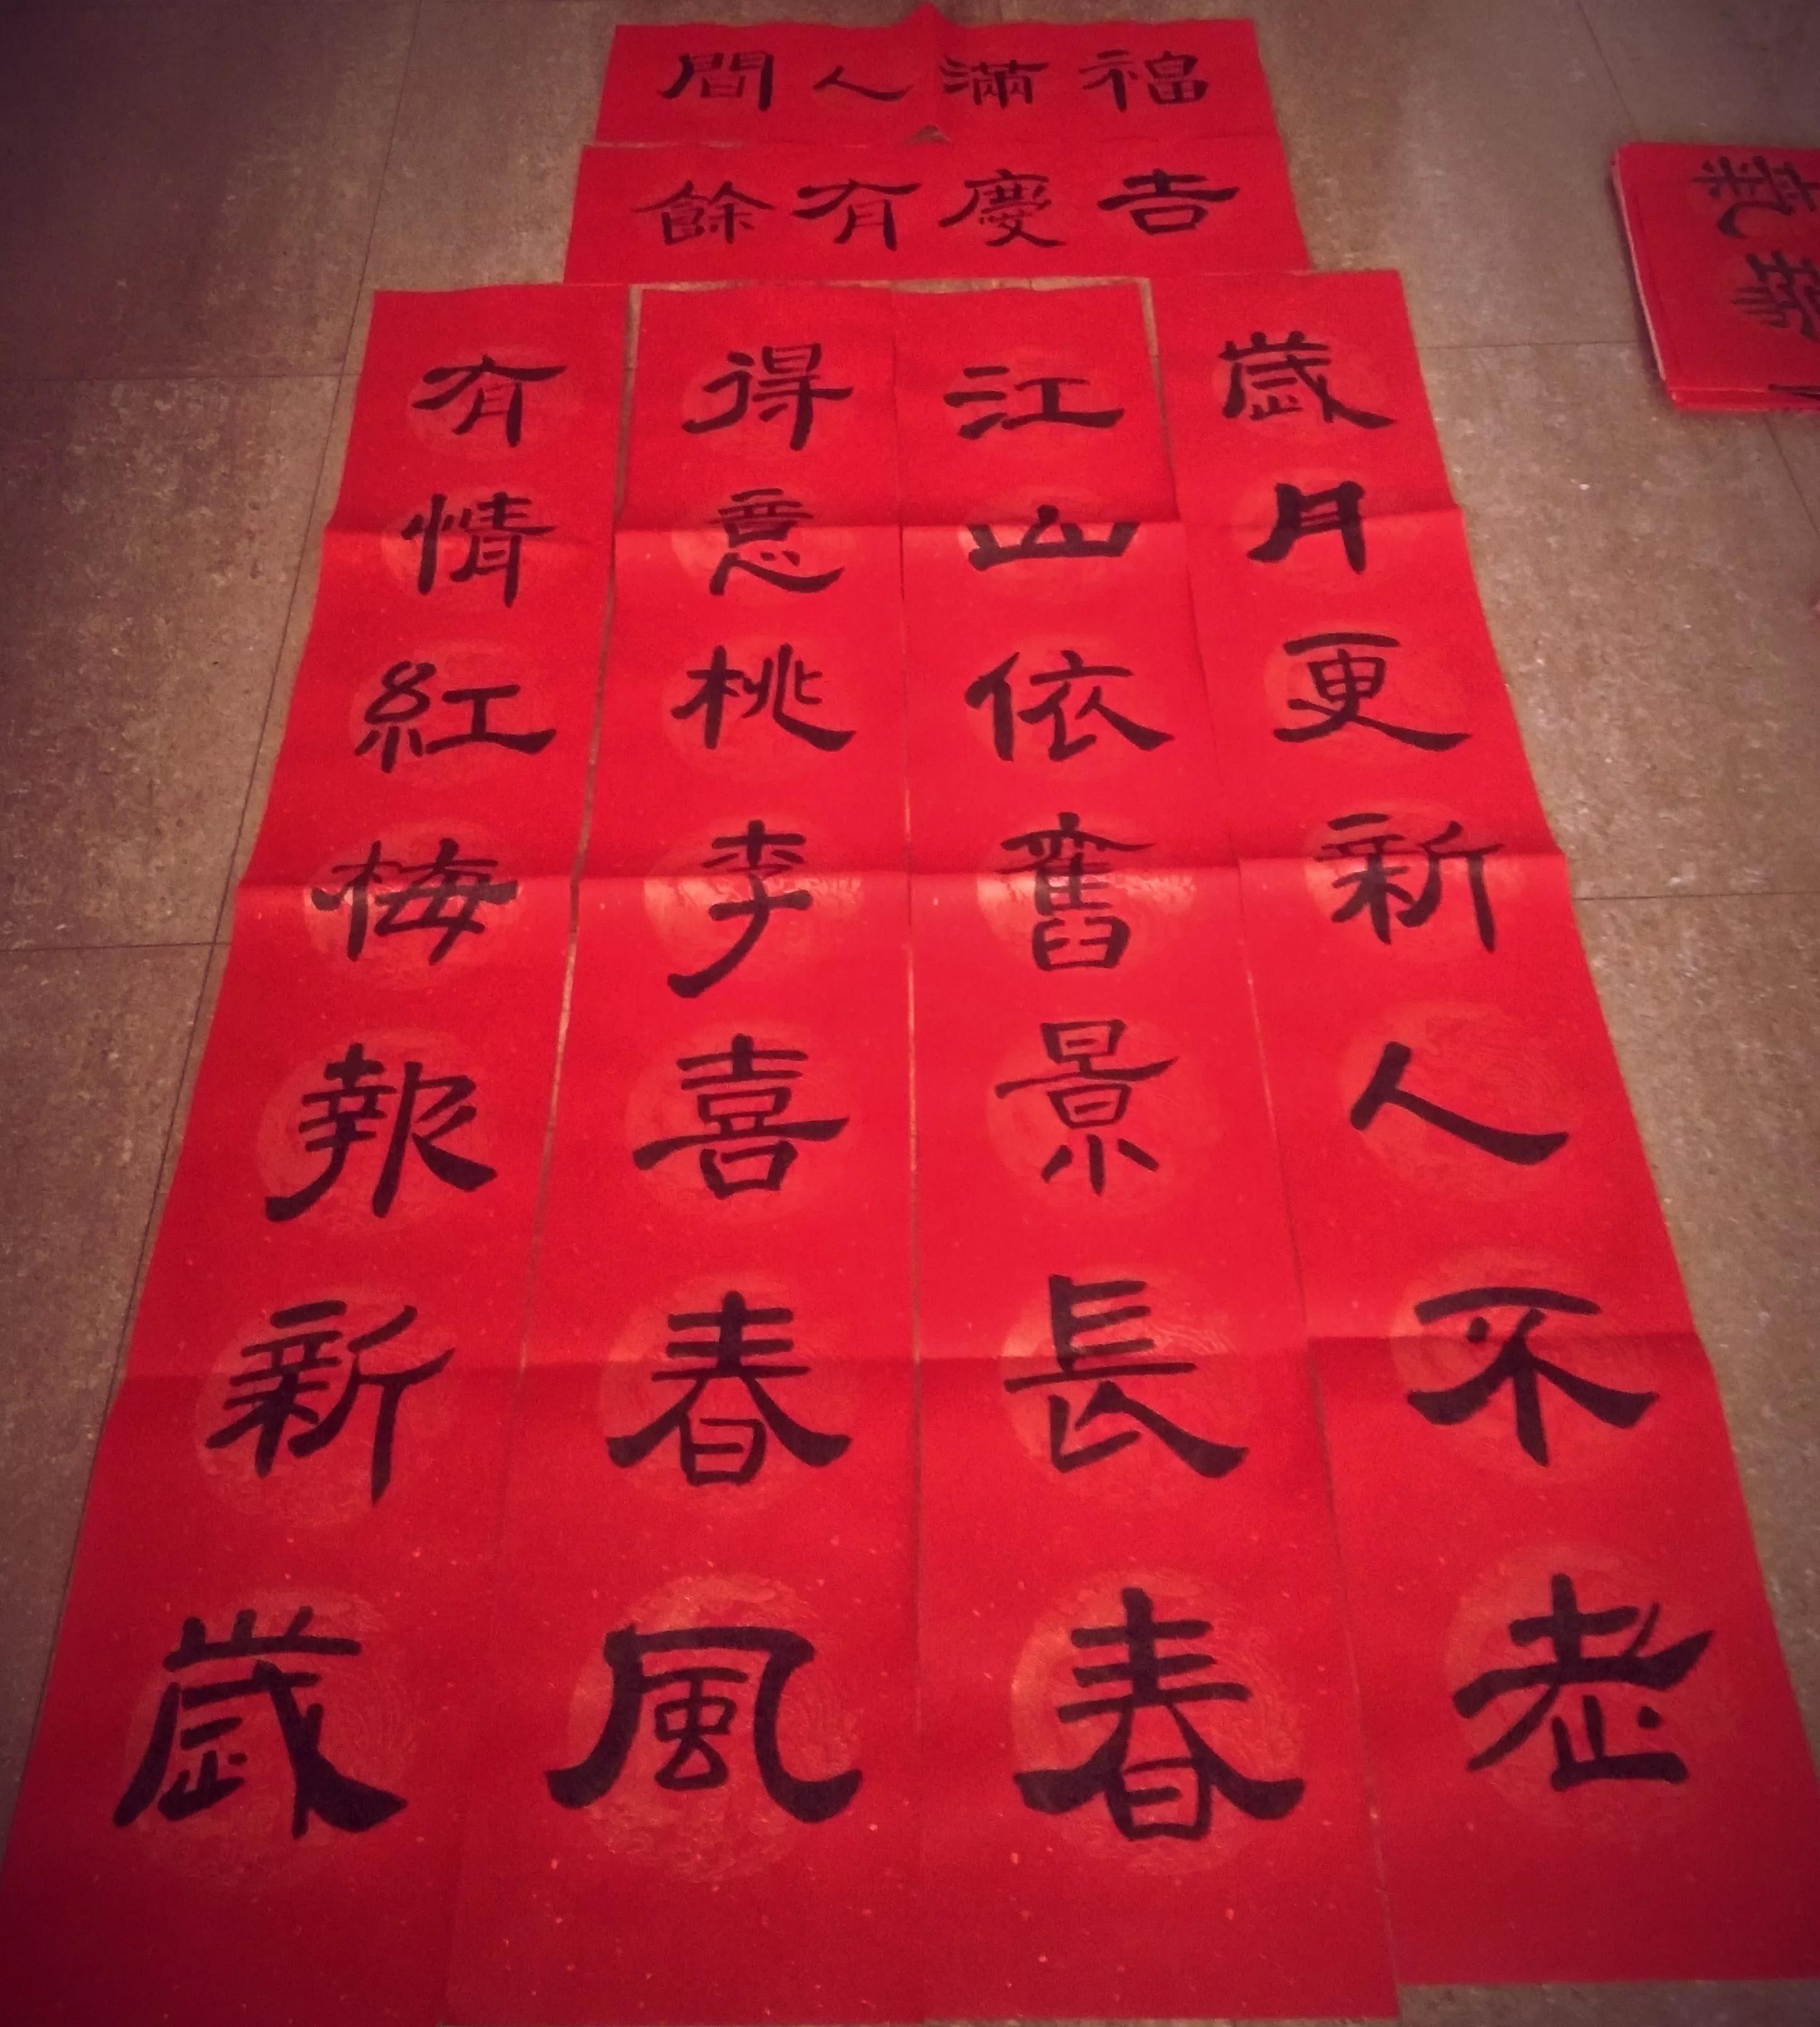 福滿人間
吉慶有餘
歲月更新人不老
江山依舊景長春
得意桃李喜春風
有情紅梅報新歲